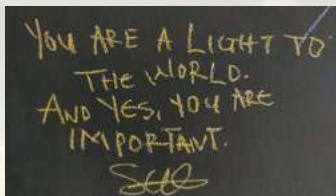 YOU ARE A LIGHT TO
THE WORLD.
AND YES, YOU ARE
IMPORTANT.